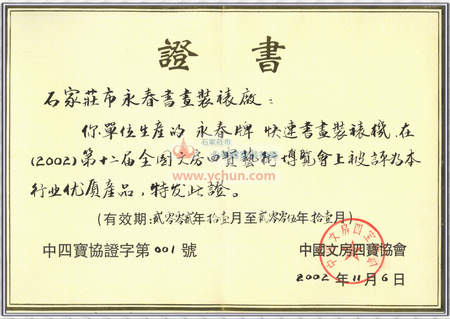 證書
石家莊市永春書畫裝裱廠:
你單位生産的 永春牌 快速書畫裝裱機 在
(2002)第十二届全国文房四寶藝術博覽會上被評為本
行业优质産品,特发此證。
(有效期:貳零零貳年拾壹月至貳零零伍年拾壹月)
中四寶協證字第001號
中國文房四寶協會
2002年11月6日
石家庄市
www.ychun.com